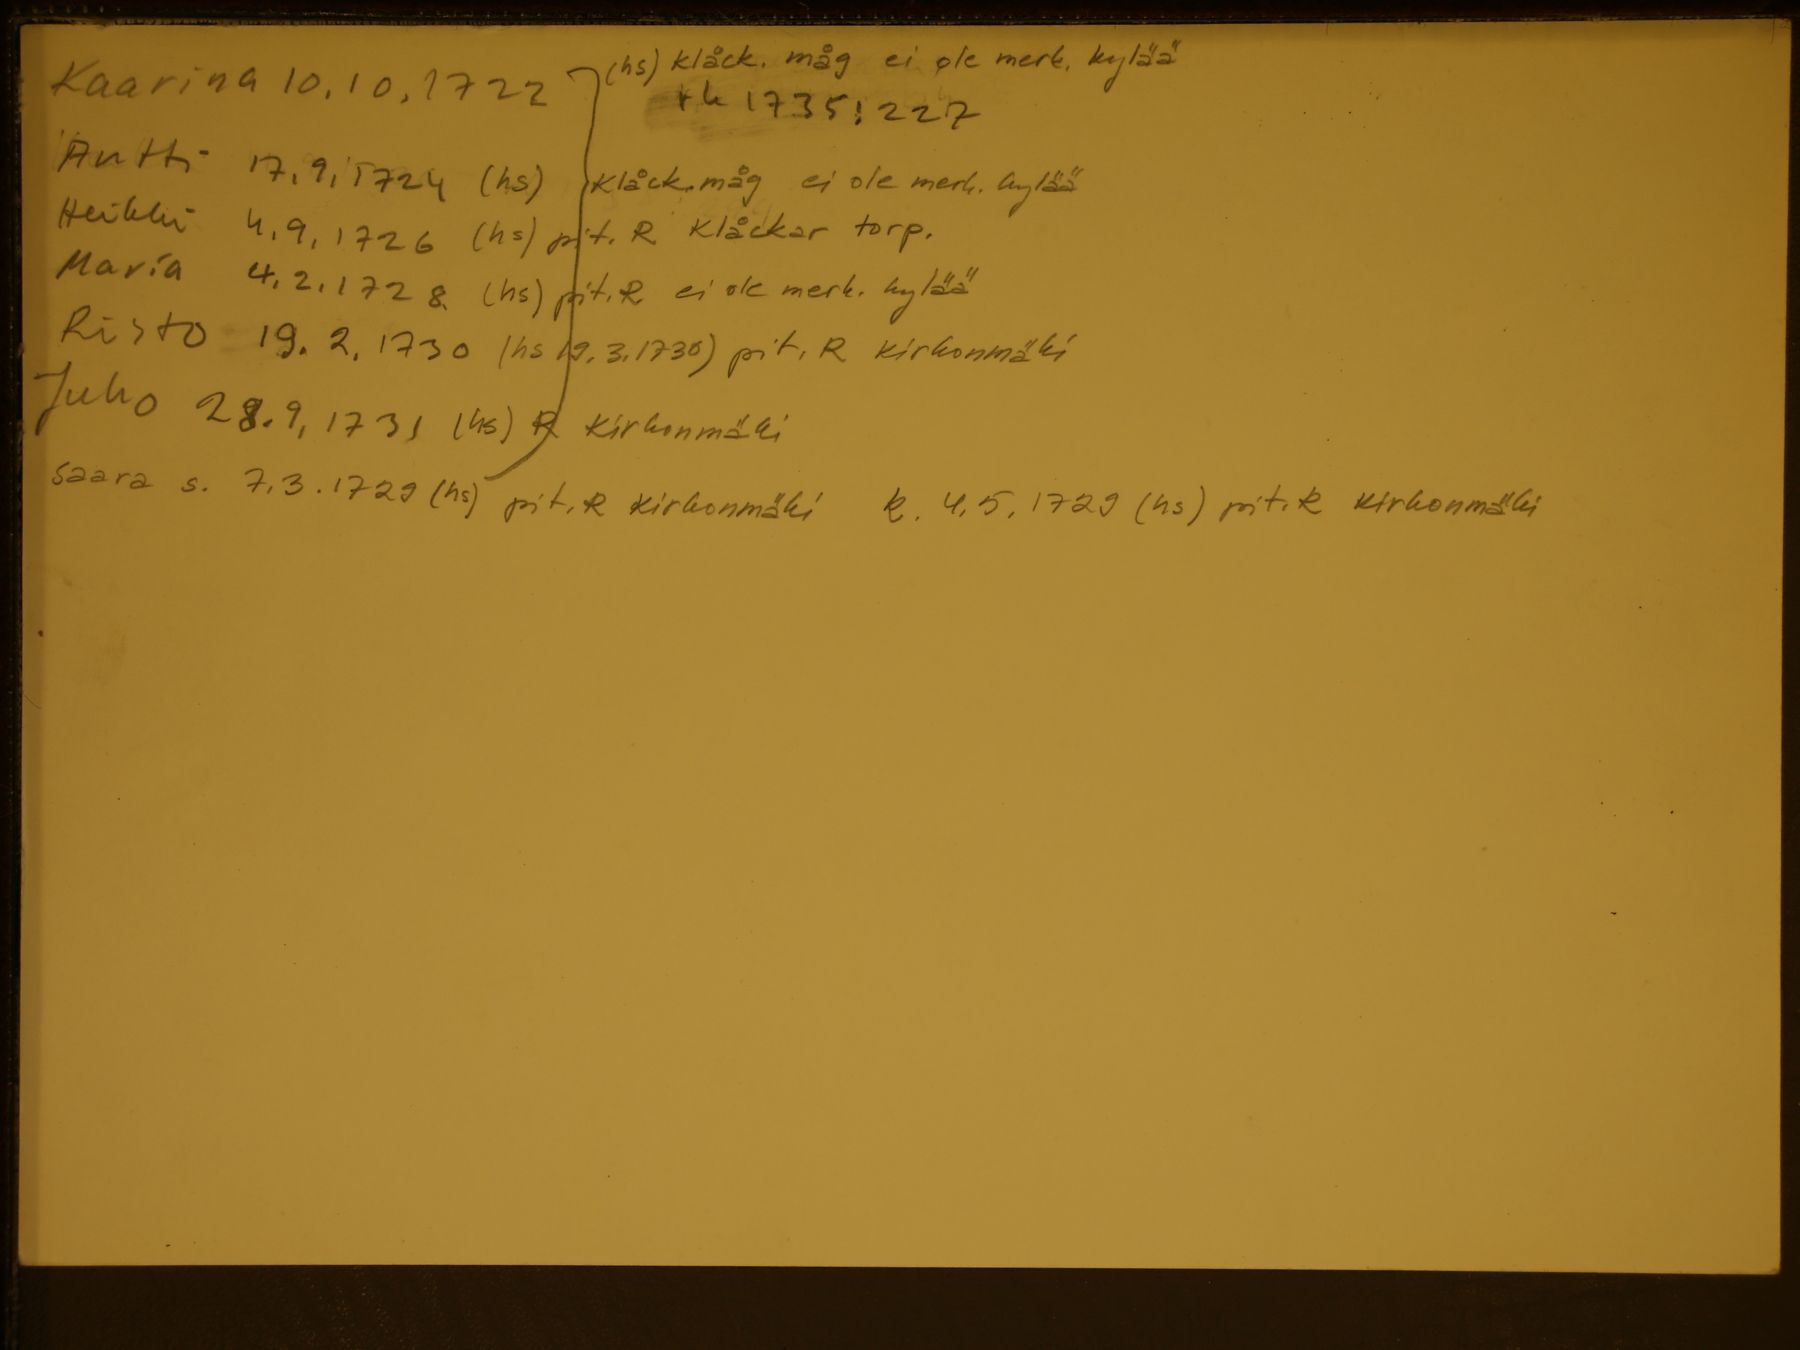 Kaarina 10.10.1722 (hs) klåck. måg ei ole merk. kylää
rk 1735:227
Antti 17.9.1724 (hs) klåck.måg ei ole merk. kylää
Heikki 4.9.1726 (hs) pit. R klåckar torp.
Maria 4.2.1728 (hs) pit. R ei ole merk. kylää
Risto 19.2.1730 (hs 19.3.1730) pit. R Kirkonmäki
Juho 28.9.1731 (hs) R Kirkonmäki
Saara s. 7.3.1729 (hs) pit. R Kirkonmäki k. 4.5.1729 (hs) pit. R Kirkonmäki